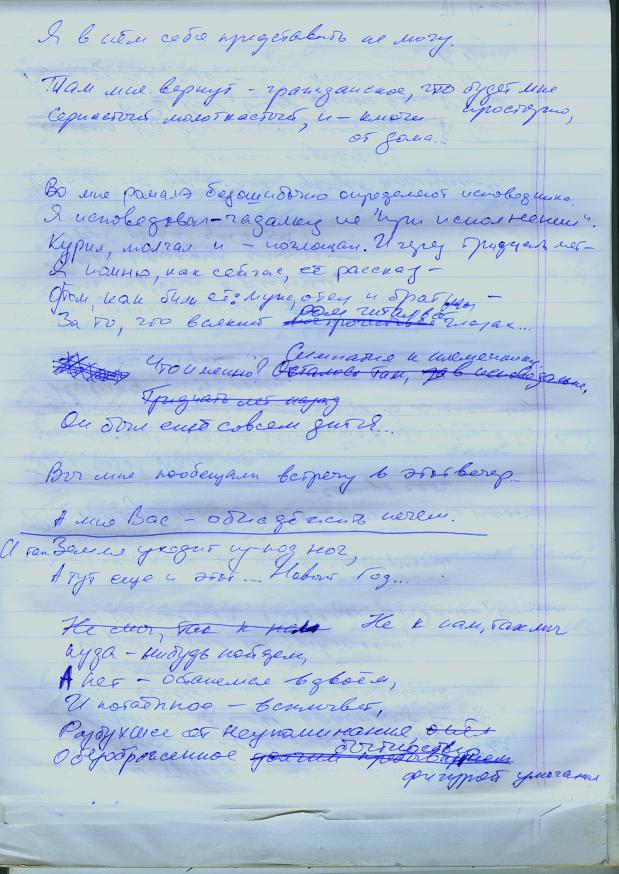 Я в нём себя представить не могу.
Там мне вернут - гражданское, что будет мне
просторно,
Серпастый молоткастый, и - ключи
от дома...
Во мне ромалэ безошибочно определяют исповедника.
Я исповедовал - гадалку не "при исполнении".
Курил, молчал и - поглощал. И через тридцать лет -
Я помню, как сейчас, её рассказ -
О том, как били её: муж, отец и брат -
За то, что всякий глазах...
Что именно? Симпатия к племяннику.
Осталось так,
Тридцать лет назад
Он был ещё совсем дитя...
Вы мне пообещали встречу в этот вечер...
А мне Вас - обнадёжить нечем.
И так Земля уходит из-под ног,
А тут еще и этот... Новый Год...
Не мы, так к нам Не к нам, так мы
куда-нибудь пойдем,
А нет - останемся вдвоём,
И потаённое - всплывёт,
Разбухшее от неупоминания,
бытностью
Обезображенное
фигурой умолчания